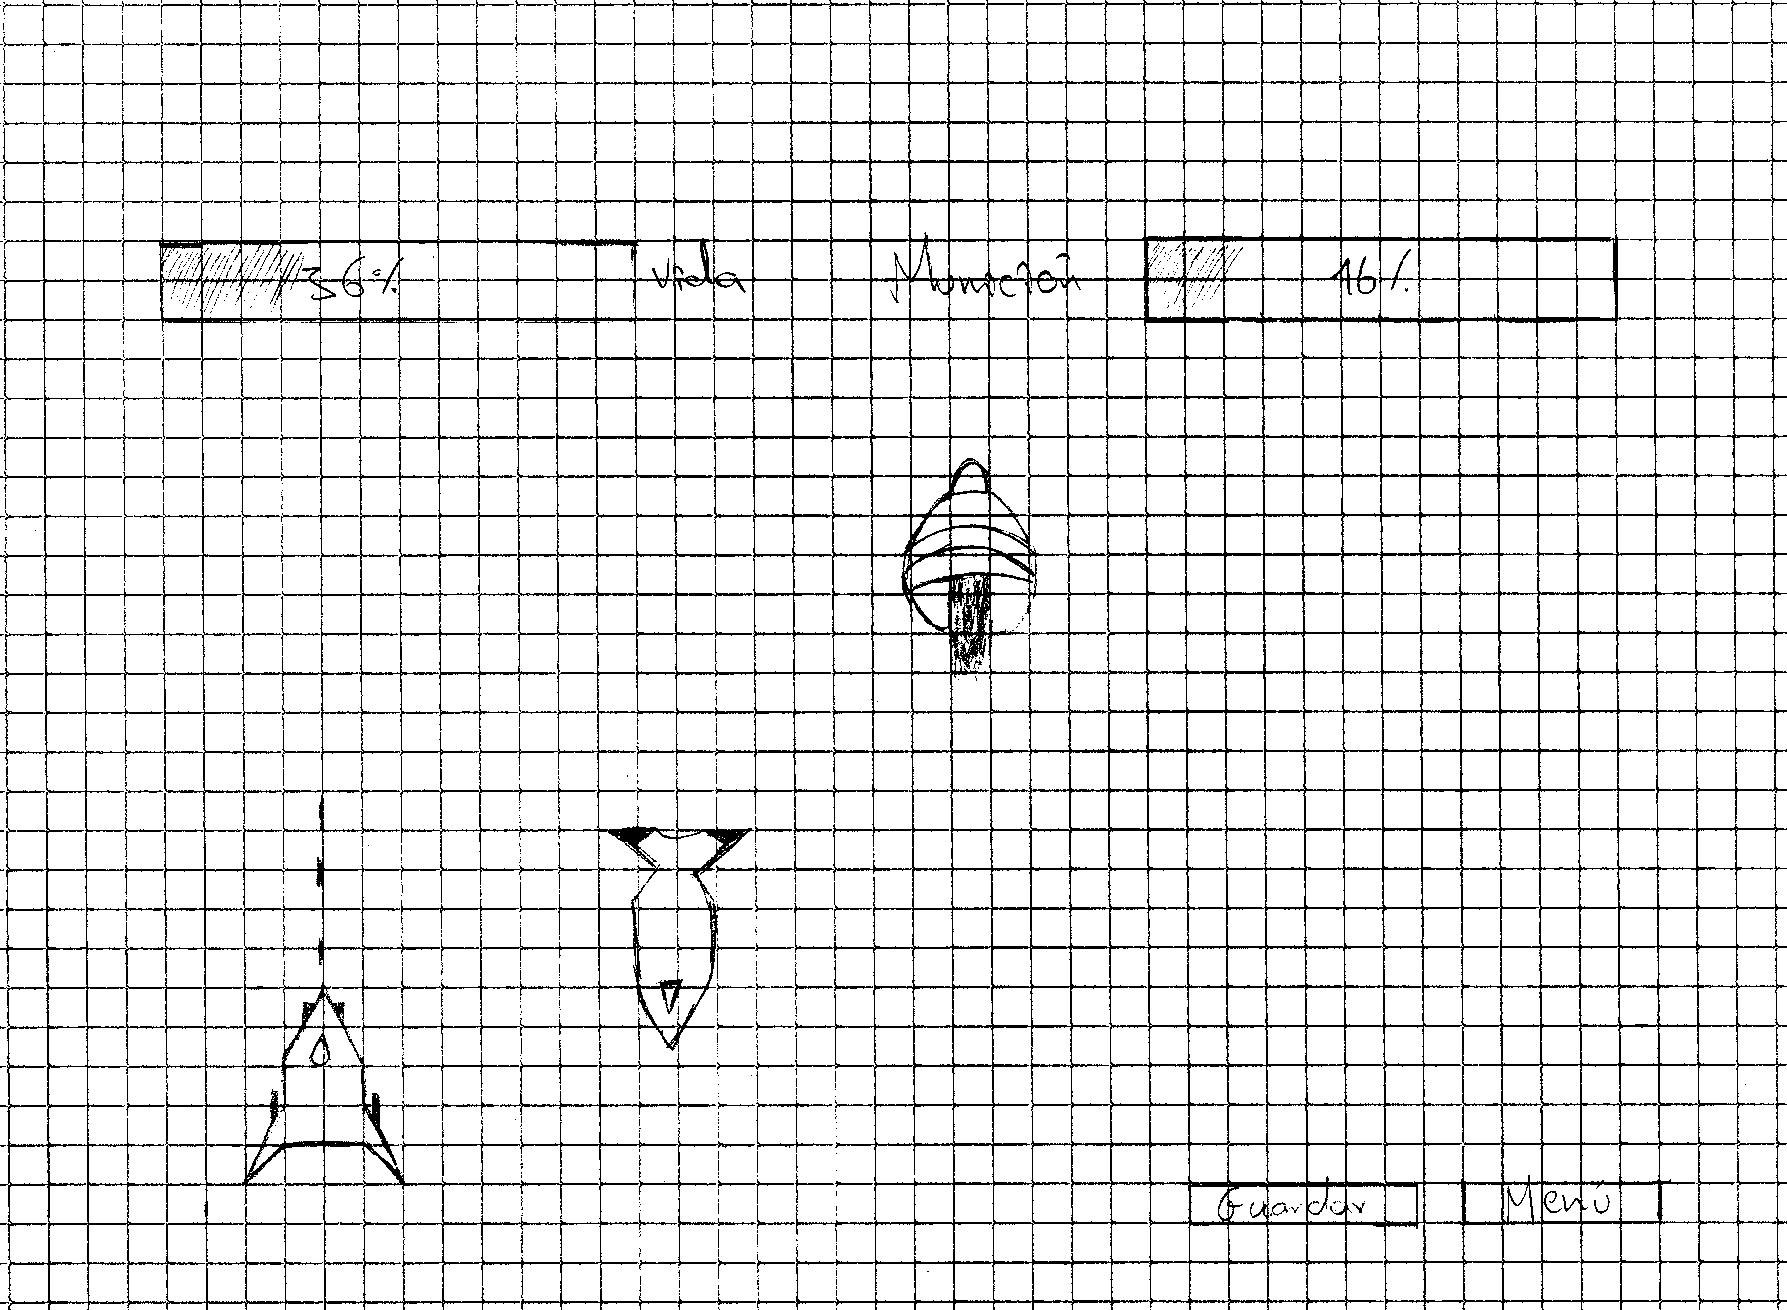 36% Vida Munición 16%
Guardar Menú